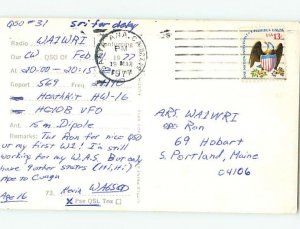 QSO #31 sri for delay
Radio WA1WRI
Our CW QSO Of Feb 22 1977
At 20:00-20:15
Report 569 Freq
HeathKit HW-16
HG10B VFO
Ant. 15 m. Dipole
Remarks: Tnx Ron for nice QSO
ur my first W.I. I'm still
working for my W.A.S. But only
have 9 other states (Hi, Hi)
Hpe to Cuagn
Age 16 73. Kevin
Pse QSL Tnx
PM
19 MAR
1977
13c
ARS WA1WRI
Ron
69 Hobart
S. Portland, Maine
04106